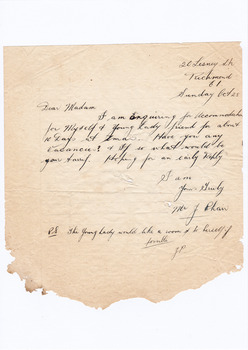 20 Lesney St
Richmond
E1
Sunday Oct 2
Dear Madam
I am Enquiring for Accomodation
for Myself & Young Lady friend for about
10 Days at Xmas. Have you any
Vacancies? & If so what would be
your tariff. Hoping for an early Reply
I am
Yours Truly
Mr J
P.S. The Young Lady would like a room to herself if
possible
J.P.